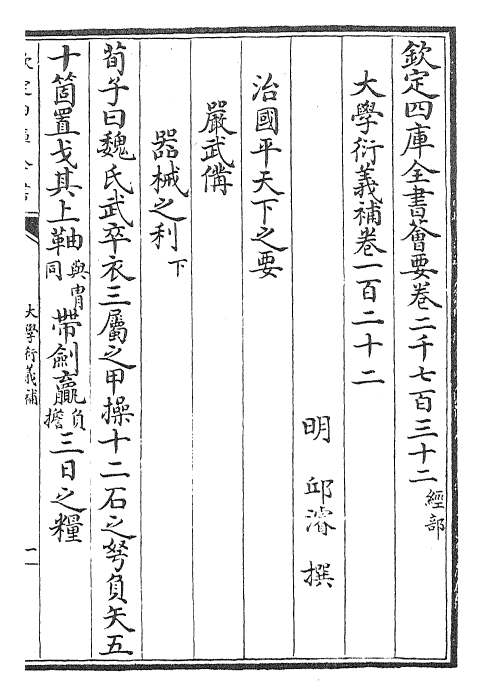 欽定四庫全書薈要卷二千七百三十二經部
大學衍義補卷一百二十二
明 邱濬 撰
治國平天下之要
嚴武備
器械之利下
荀子曰魏氏武卒衣三屬之甲操十二石之弩負矢五
十箇置戈其上䩜與胄同帶劍贏負擔三日之糧
大學衍義補
一